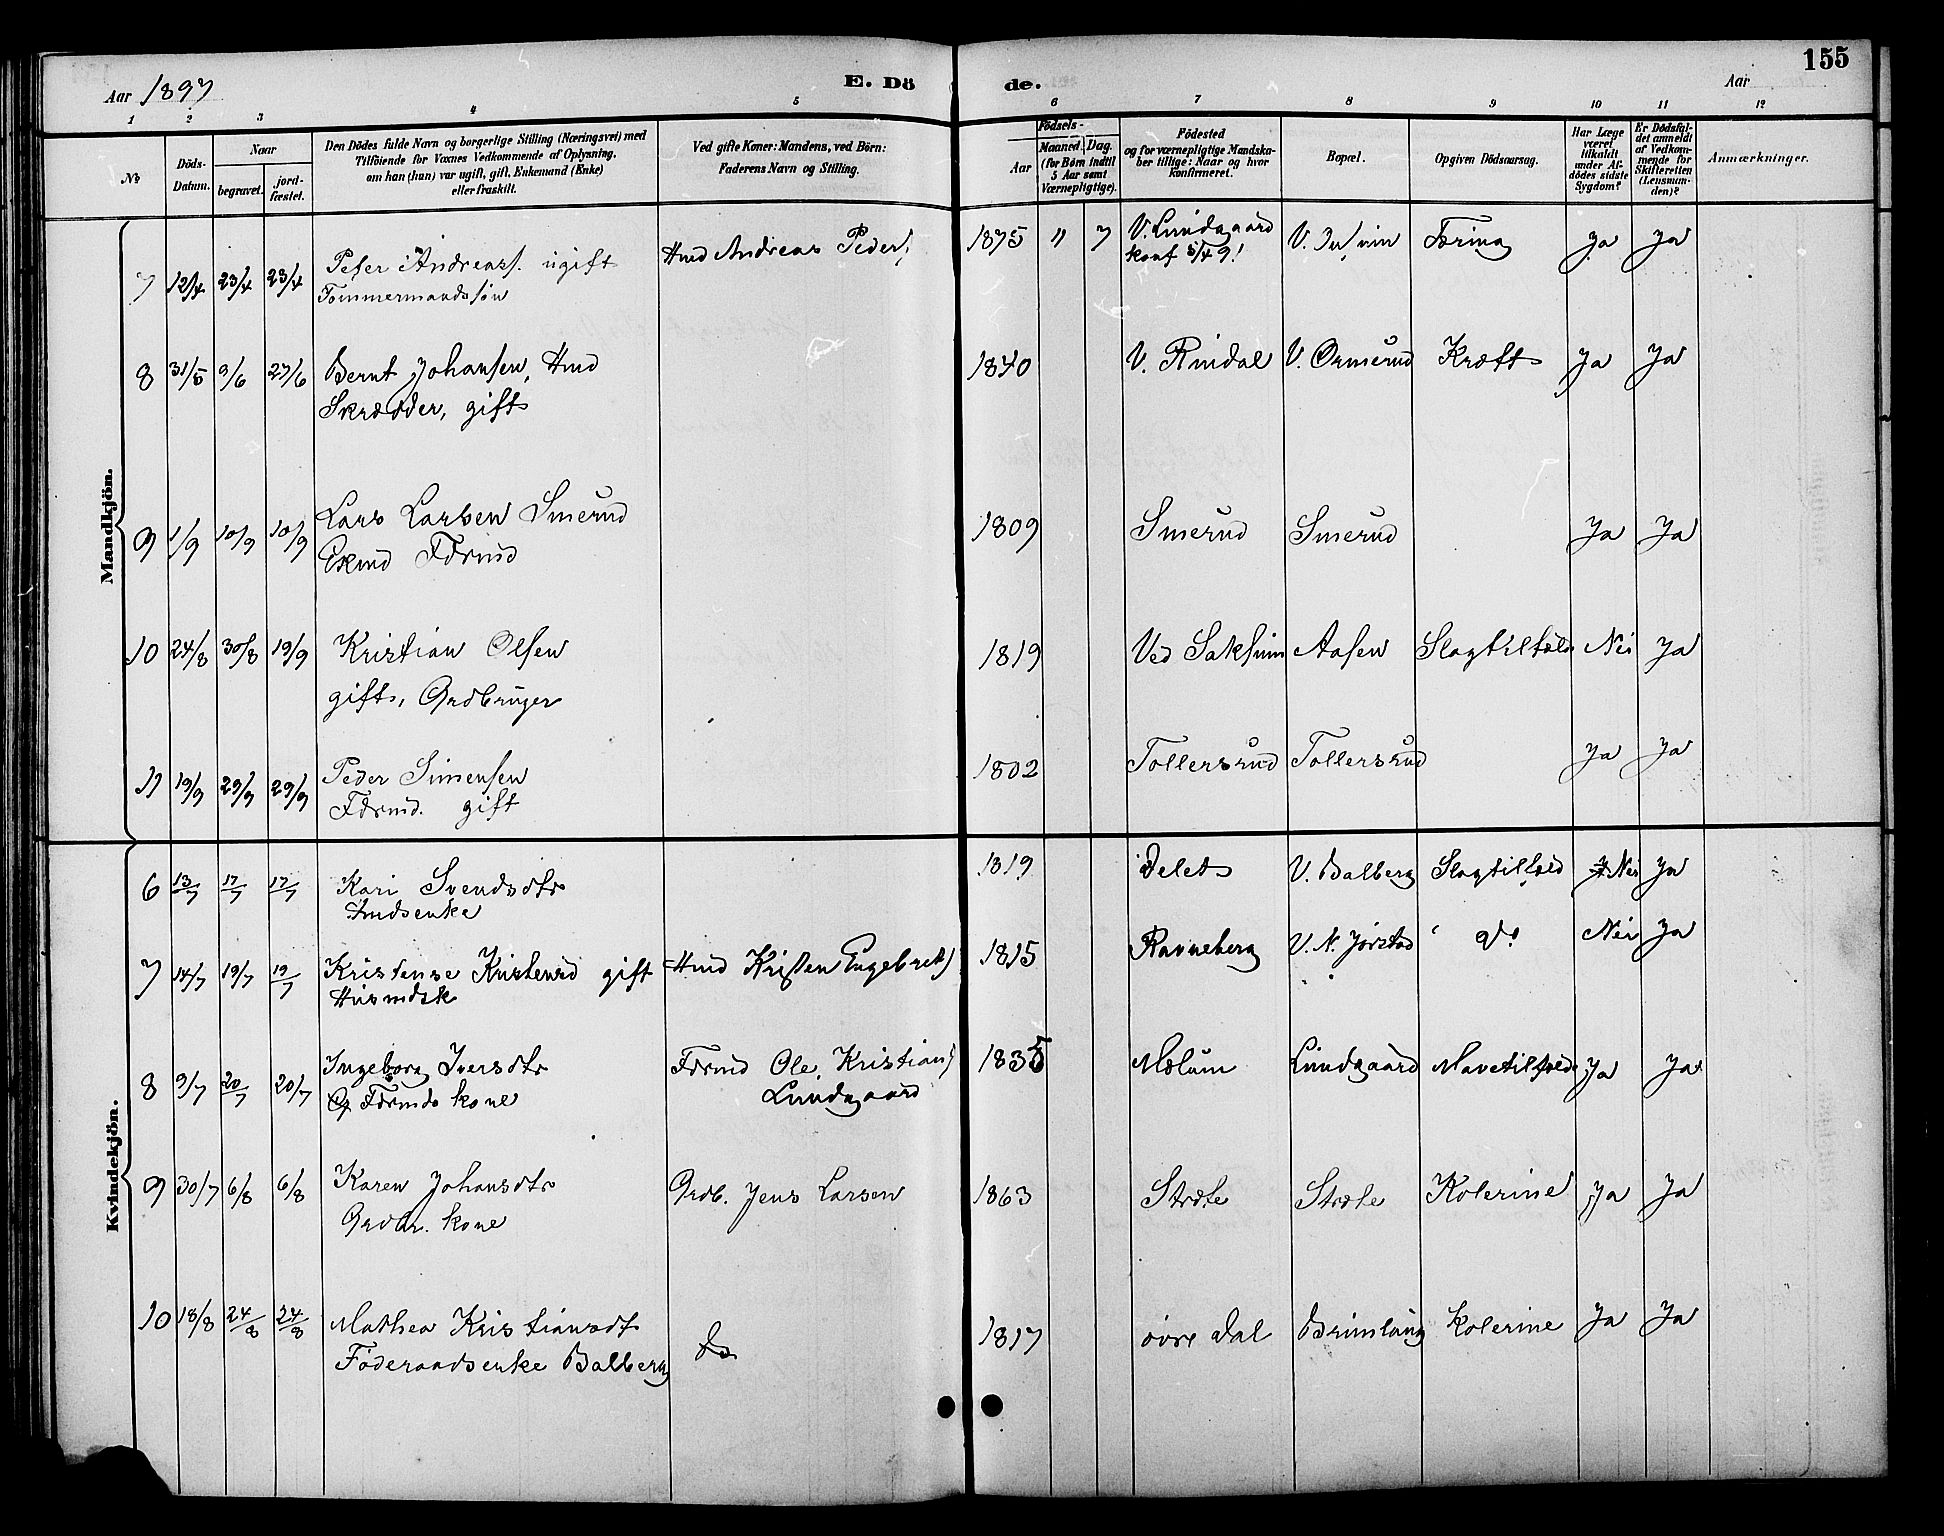 155
Aar 1897
E. Dö
de.
Aar
1 2 3 4 5 6 7 8 9 10 11 12
№
Döds-
Datum.
Naar
begravet.
jord-
fæstet.
Den Dödes fulde Navn og borgerlige Stilling (Næringsvei) med
Tilföiende for Voxnes Vedkommende af Oplysning,
om han (hun) var ugift, gift, Enkemand (Enke)
eller fraskilt.
Ved gifte Koner: Mandens, ved Börn:
Faderens Navn og Stilling.
Födsels-
Aar
Maaned. Dag.
(for Börn indtil
5 Aar samt
Værnepligtige).
Födested
og for værnepligtige Mandska-
ber tillige: Naar og hvor
konfirmeret.
Bopæl.
Opgiven Dödsaarsag.
Har Læge
været
tilkaldt
under Af-
dödes sidste
Sygdom?
Er Dödsfal-
det anmeldt
af Vedkom-
mende for
Skifteretten
(Lensman-
den)?
Anmærkninger.
Mandkjön.
7 12/4 23/4 23/4 Peter Andreass. ugift Hmd Andreas Peders. 1875 11 7 V. Lundgaard V. Tæring Ja Ja
Tømmermandssøn konf
8 31/5 9/6 27/6 Bernt Johansen, Hmd 1840 V. Rindal V. Ormerud Kræft Ja Ja
Skrædder, gift
9 1/9 10/9 10/9 Lars Larsen Smerud 1809 Smerud Smerud Ja Ja
Ekmd Fdrmd
10 24/8 30/8 19/9 Kristian Olsen 1819 Ved Saksum Aasen Slagtilfæld Nei Ja
gift, Grdbruger
11 19/9 29/9 29/9 Peder Simensen 1802 Tollersrud Tollersrud Ja Ja
Fdrmd. gift
Kvindekjön.
6 13/7 17/7 17/7 Kari Svendsdtr 1819 Delet V. Balberg Slagtilfæld Nei Ja
Hmdsenke
7 14/7 19/7 19/7 Kristense Kristensd gift Hmd Kristen Engebrets. 1815 Ravneberg V. N. Jørstad " do Nei Ja
Husmdsk
8 9/7 20/7 20/7 Ingeborg Iversdtr Fdrmd Ole Kristians. 1835 Mælum Lundgaard Mavetilfælde Ja Ja
Fdrmds kone Lundgaard
9 30/7 6/8 6/8 Karen Johansdtr Grdb. Jens Larsen 1863 Stræte Stræte Kolerine Ja Ja
Grdbr. kone
10 18/8 24/8 24/8 Mathea Kristiansdt 1817 øvre Dal Brimlaug Kolerine Ja Ja
Føderaadsenke Balberg do